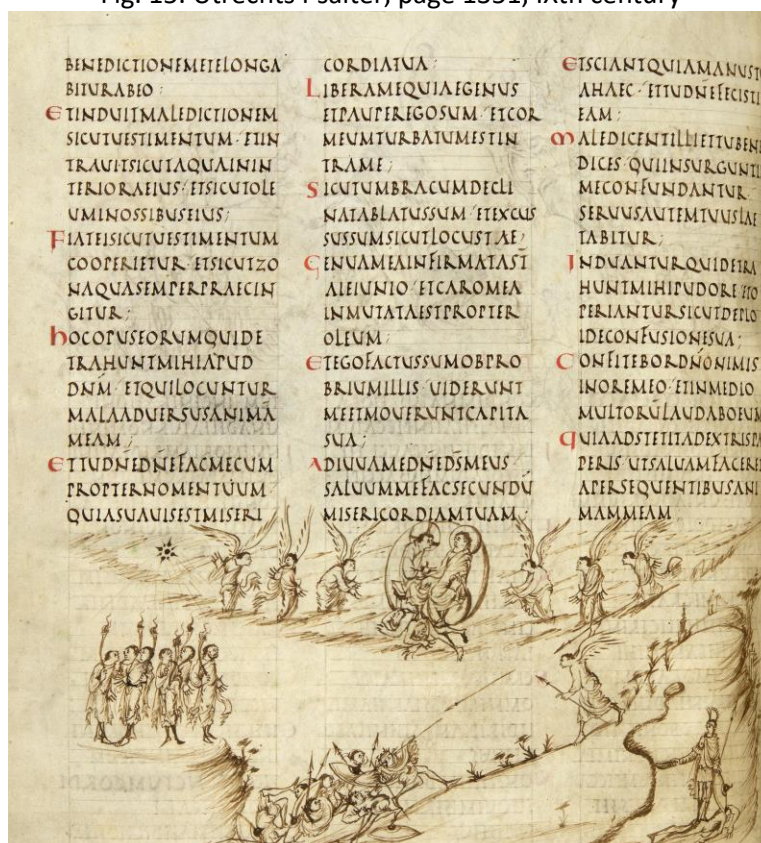 Fig. Utrechts Psalter, page IXth century
BENEDICTIONEMETELONGA
BITURABEO·
ETINDUITMALEDICTIONEM
SICUTUESTIMENTUM·ETIN
TRAUITSICUTAQUAININ
TERIORAEIUS·ETSICUTOLE
UMINOSSIBUSEIUS;
FIATEISICUTUESTIMENTUM
COOPERIETUR·ETSICUTZO
NAQUASEMPERPRAECIN
GITUR;
HOCOPUSEORUMQUIDE
TRAHUNTMIHIAPUD
DNM̄·ETQUILOCUNTUR
MALAADUERSUSANIMĀ
MEAM;
ETTUDN̄EDN̄EFACMECUM
PROPTERNOMENTUUM
QUIASUAUISESTMISERI
CORDIATUA;
LIBERAMEQUIAEGENUS
ETPAUPEREGOSUM·ETCOR
MEUMTURBATUMESTIN
TRAME;
SICUTUMBRACUMDECLI
NATABLATUSSUM·ETEXCUS
SUSSUMSICUTLOCUSTAE;
GENUAMEAINFIRMATAST̄
AIEIUNIO·ETCAROMEA
INMUTATAESTPROPTER
OLEUM;
ETEGOFACTUSSUMOBPRO
BRIUMILLIS·UIDERUNT
MEETMOUERUNTCAPITA
SUA;
ADIUUAMEDN̄EDS̄MEUS
SALUUMMEFACSECUNDŪ
MISERICORDIAMTUAM;
ETSCIANTQUIAMANUST
AHAEC·ETTUDN̄EFECISTI
EAM;
MALEDICENTILLIETTUBEN
DICES·QUIINSURGUNTI
MECONFUNDANTUR·
SERUUSAUTEMTUUSLAE
TABITUR;
INDUANTURQUIDETRA
HUNTMIHIPUDORE·ETO
PERIANTURSICUTDEPLO
IDECONFUSIONESUA;
CONFITEBORDN̄ONIMIS
INOREMEO·ETINMEDIO
MULTORŪLAUDABOEUM
QUIAADSTETITADEXTRISPA
PERIS·UTSALUAMFACERE
APERSEQUENTIBUSANI
MAMMEAM